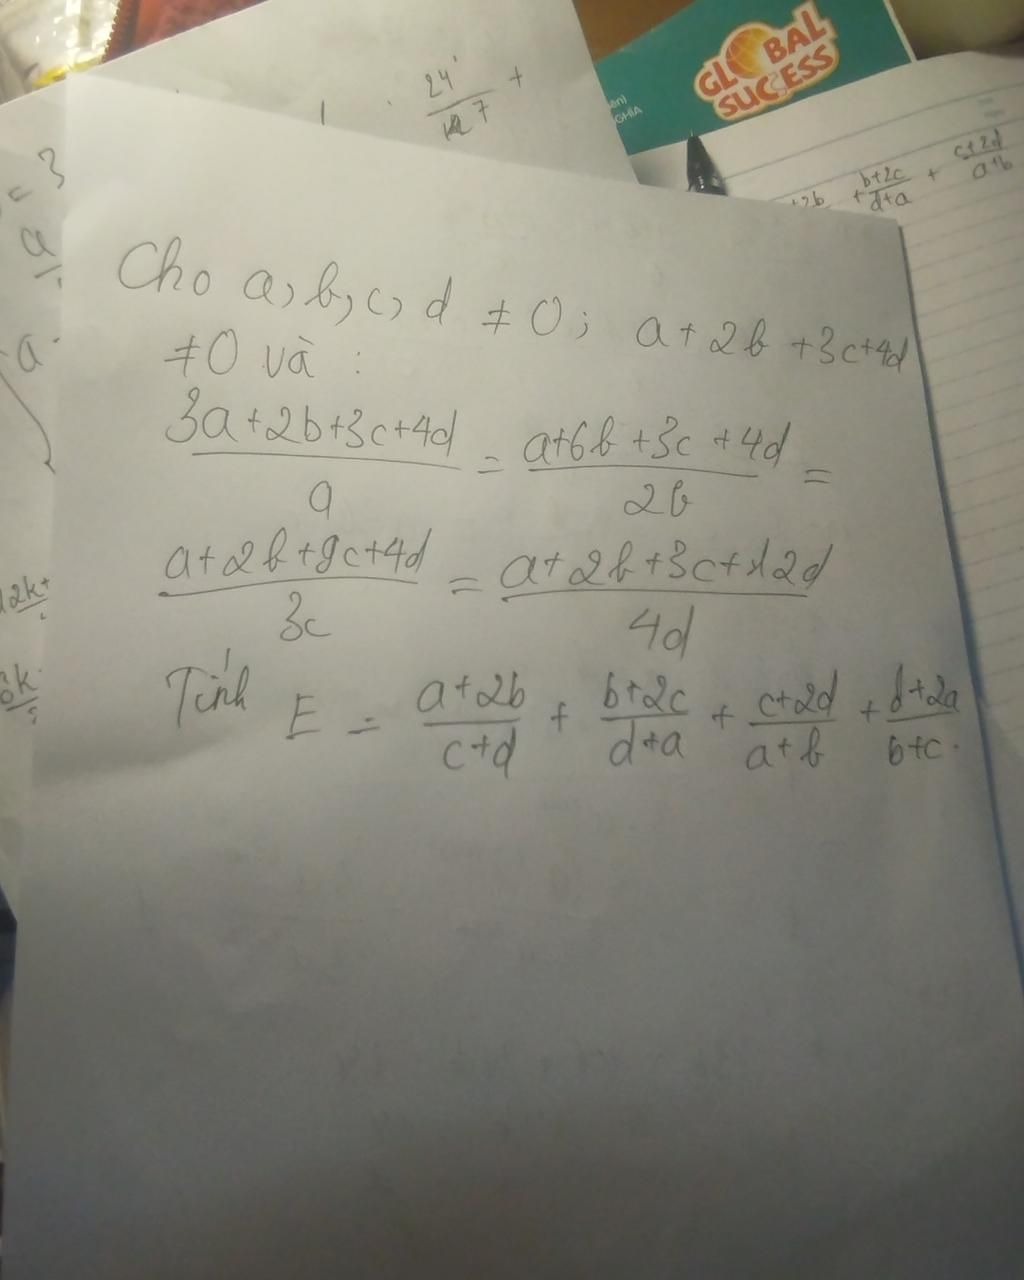 24
7
+
GLOBAL
SUCCESS
GHIA
+2b + b+2c/d+a + c+2d/a+b
= 3
a
a
Cho a, b, c, d ≠ 0; a + 2b + 3c + 4d
≠ 0 và :
3a+2b+3c+4d/a = a+6b+3c+4d/2b =
a+2b+9c+4d/3c = a+2b+3c+12d/4d
Tính E = a+2b/c+d + b+2c/d+a + c+2d/a+b + d+2a/b+c.